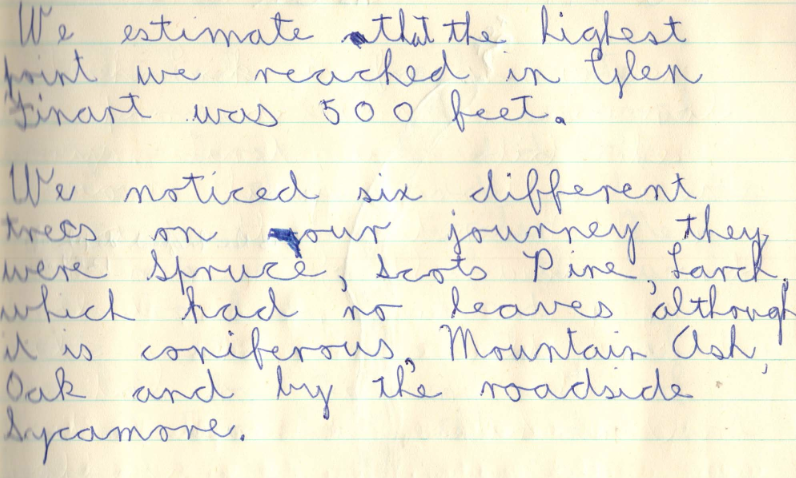 We estimate that the highest
point we reached in Glen
Finart was 500 feet.
We noticed six different
trees on our journey they
were Spruce, Scots Pine, Larch,
which had no leaves although
it is coniferous, Mountain Ash,
Oak and by the roadside
Sycamore.